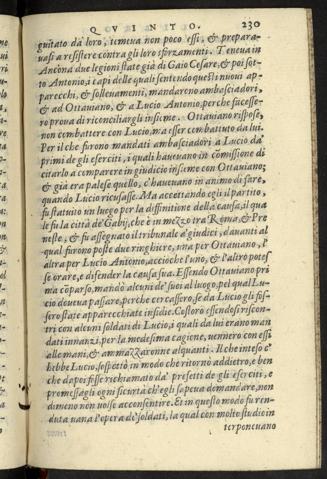 QVINTO. 230
guitato da loro, temeua non poco essi, & prepara-
uasi a resistere contra gli loro sforzamenti. Teneua in
Ancona due legioni state già di Gaio Cesare, & poi sot-
to Antonio, i capi delle quali sentendo questi nuoui ap-
parecchi, & solleuamenti, mandareno ambasciadori,
& ad Ottauiano, & a Lucio Antonio, perche facesse-
ro proua di riconciliargli insieme. Ottauiano rispose,
non combattere con Lucio, ma esser combattuto da lui.
Per il che furono mandati ambasciadori a Lucio da'
primi de gli eserciti, i quali haueuano in cōmissione di
citarlo a comparere in giudicio insieme con Ottauiano;
& già era palese quello, c'haueuano in animo di fare,
quando Lucio ricusasse. Ma accettando egli il partito,
fu statuito un luogo per la diffinitione della causa, il qua
le fu la città de' Gabij, che è in mezzo tra Roma, & Pre
neste, & fu assegnato il tribunale a' giudici, dauanti al
qual furono poste due ringhiere, una per Ottauiano, l'
altra per Lucio Antonio, accioche l'uno, & l'altro potes
se orare, e difender la causa sua. Essendo Ottauiano pri
ma cōparso, mandò alcuni de' suoi al luogo, pel qual Lu-
cio deueua passare, perche cercassero, se da Lucio gli fos-
sero state apparecchiate insidie. Costoro essendosi riscon-
tri con alcuni soldati di Lucio, i quali da lui erano man
dati innanzi, per la medesima cagione, uennero con essi
alle mani, & ammazzaronne alquanti. Il che inteso c'
hebbe Lucio, sospettò in modo che ritornò addietro, e ben
che da poi fosse richiamato da' prefetti de gli eserciti, e
promessagli ogni sicurtà ch'egli sapeua demandare, non
dimeno non uolse acconsentire. Et in questo modo fu ren-
duta uana l'opera de' soldati, la qual con molto studio in
terponeuano